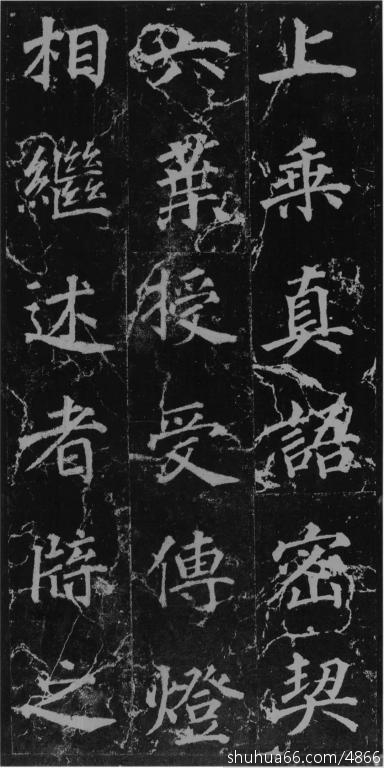 上乘真語密契
六葉授受傳燈
相繼述者之
shuhua66.com/4866